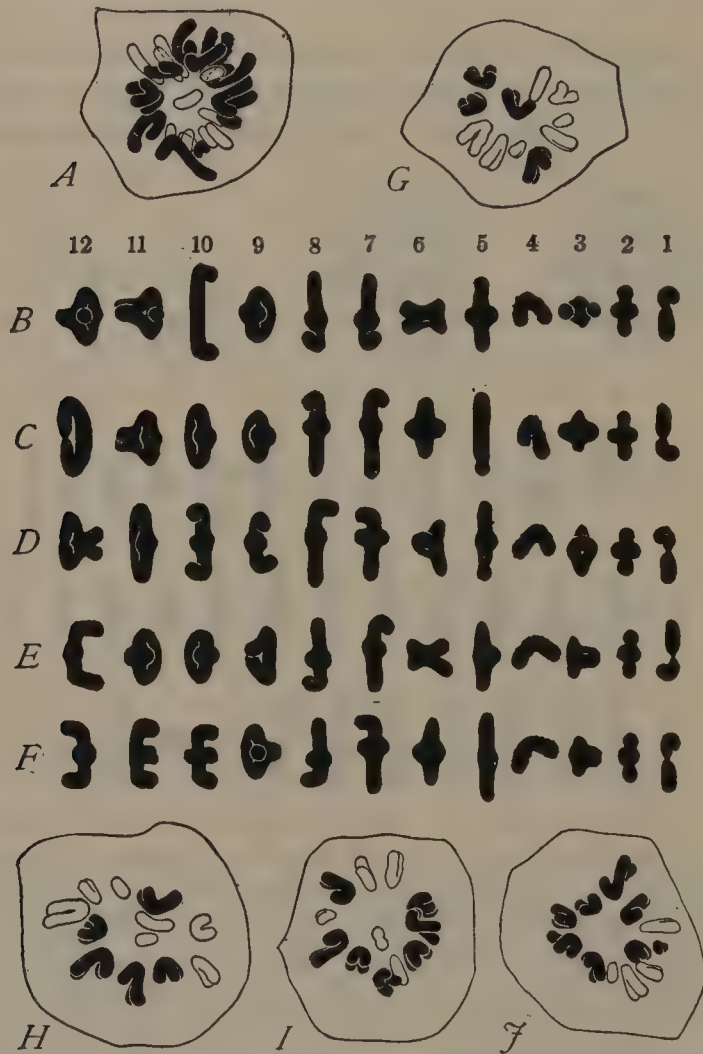 A
G
12 11 10 9 8 7 6 5 4 3 2 1
B
C
D
E
F
H
I
J